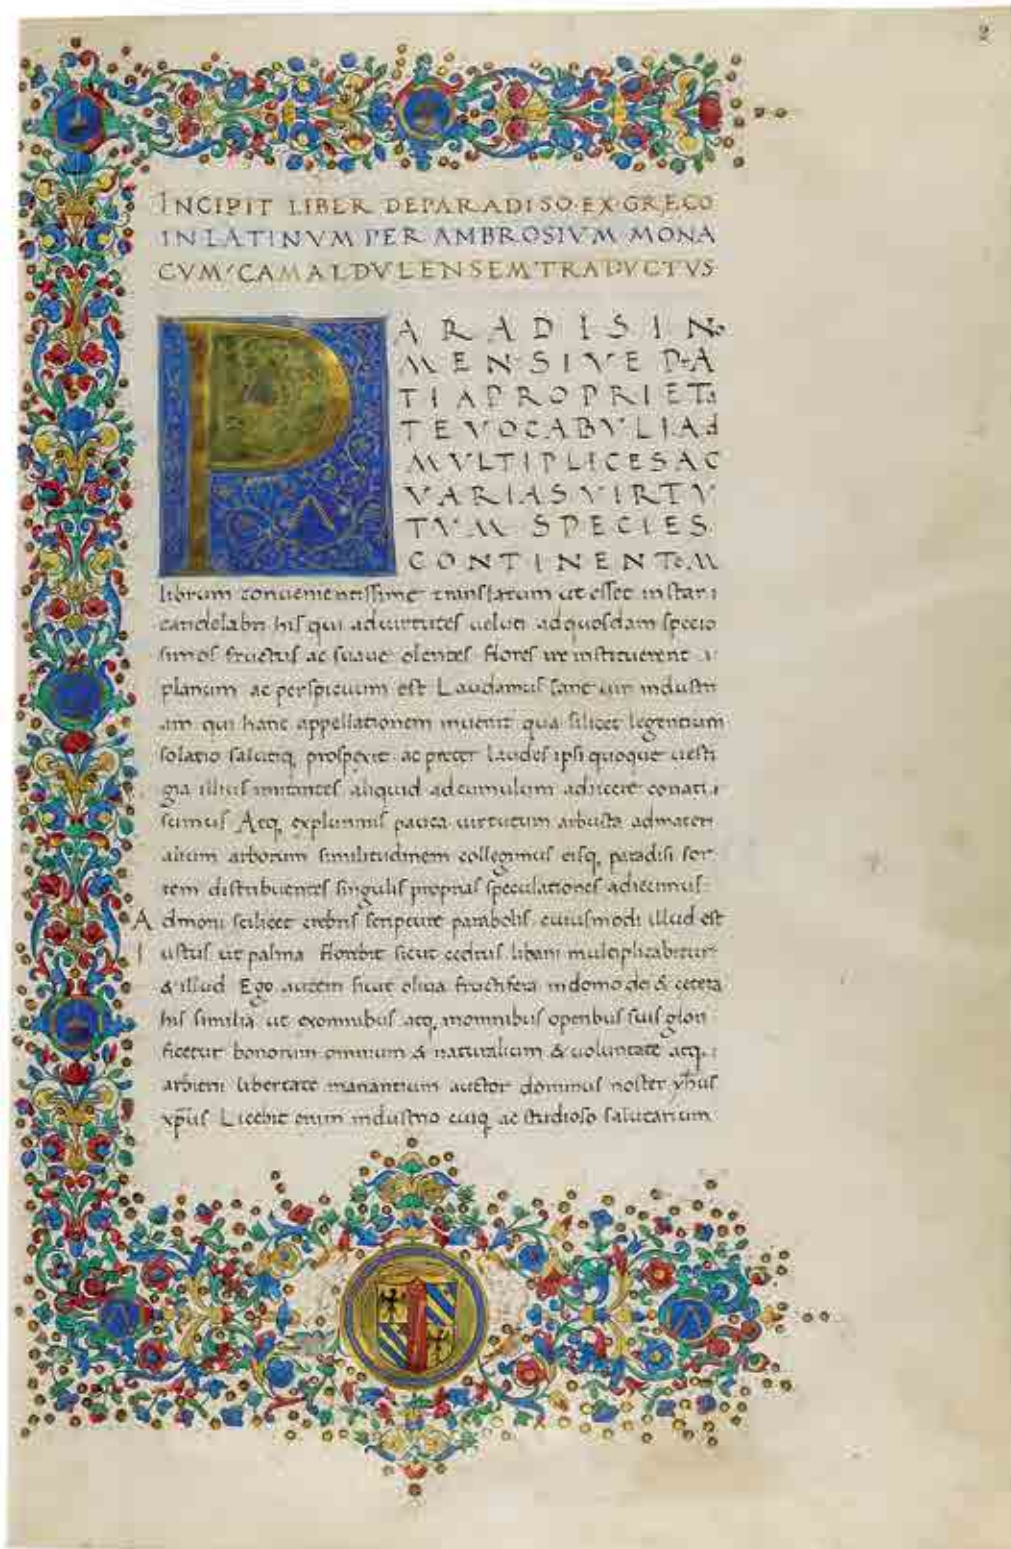 2
INCIPIT LIBER DEPARADISO·EX·GRECO
INLATINVM PER AMBROSIVM MONA
CVM CAMALDVLENSEM TRADVCTVS
PARADISI IN
MENSIVE PRA
TI APROPRIETA
TE VOCABVLI Ad
MVLTIPLICES AC
VARIAS VIRTV
TVM SPECIES
CONTINENTEM
librum convenientissime translatum ut esset instar
candelabri his qui advirtutes veluti adquosdam specio
simos fructus ac suave olentes flores
planum ac perspicuum est Laudamus sane viri industri
am qui hanc appellationem invenit qua scilicet legentium
solatio salutiq, prospexit ac preter laudes ipsi quoque vesti
gia illius imitantes aliquid adcumulum adiicere conati
sumus Atq, pauca virtutum arbusta admateri
alium arborum similitudinem collegimus eisq, paradisi sor
tem distribuentes singulis proprias speculationes adiecimus
Admoniti scilicet crebris scripture parabolis cuiusmodi illud est
Iustus ut palma florebit sicut cedrus libani multiplicabitur
& illud Ego autem sicut oliva fructifera indomo dei & cetera
his similia ut exomnibus atq, inomnibus operibus suis glori
ficetur bonorum omnium & naturalium & voluntate atq,
arbitrii libertate manantium auctor dominus noster yhus
xpus Licebit enim industrio cuiq, ac studioso salutarium